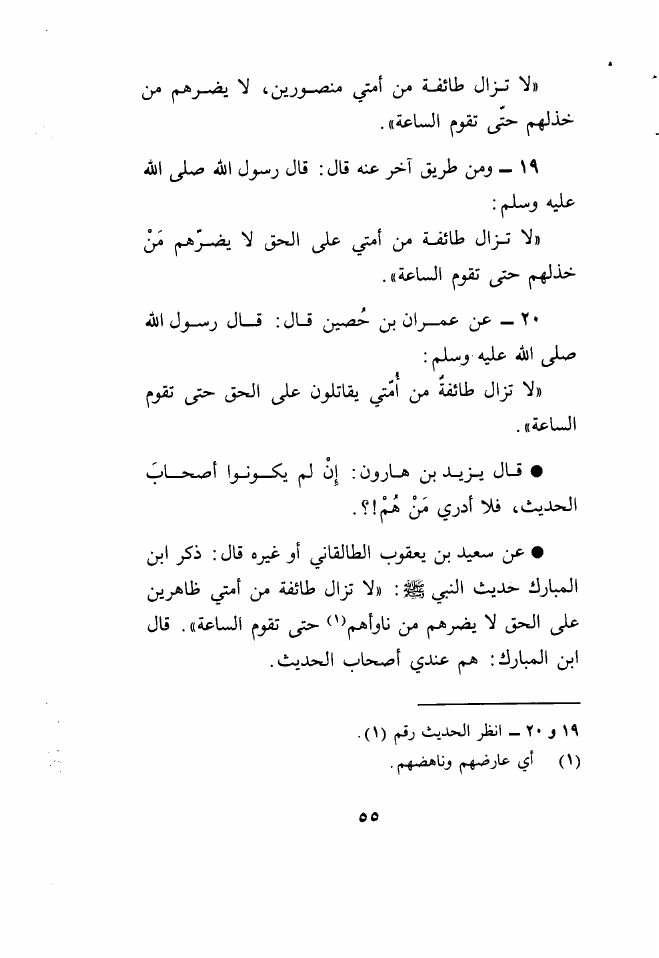 «لا تـزال طائفـة من أمتي منصـورين، لا يضـرهم من
خذلهم حتّى تقوم الساعة».
١٩ ــ ومن طريق آخر عنه قال: قال رسول الله صلى الله
عليه وسلم:
«لا تـزال طائفـة من أمتي على الحق لا يضـرّهم مَنْ
خذلهم حتى تقوم الساعة».
٢٠ ــ عن عمـران بن حُصين قـال: قـال رسـول الله
صلى الله عليه وسلم:
«لا تزال طائفةٌ من أُمّتي يقاتلون على الحق حتى تقوم
الساعة».
● قـال يـزيـد بن هـارون: إنْ لم يكـونـوا أصحـابَ
الحديث، فلا أدري مَنْ هُمْ!؟.
● عن سعيد بن يعقوب الطالقاني أو غيره قال: ذكر ابن
المبارك حديث النبي ﷺ: «لا تزال طائفة من أمتي ظاهرين
على الحق لا يضرهم من ناوأهم(١) حتى تقوم الساعة». قال
ابن المبارك: هم عندي أصحاب الحديث.
١٩ و ٢٠ ــ انظر الحديث رقم (١).
(١) أي عارضهم وناهضهم.
٥٥